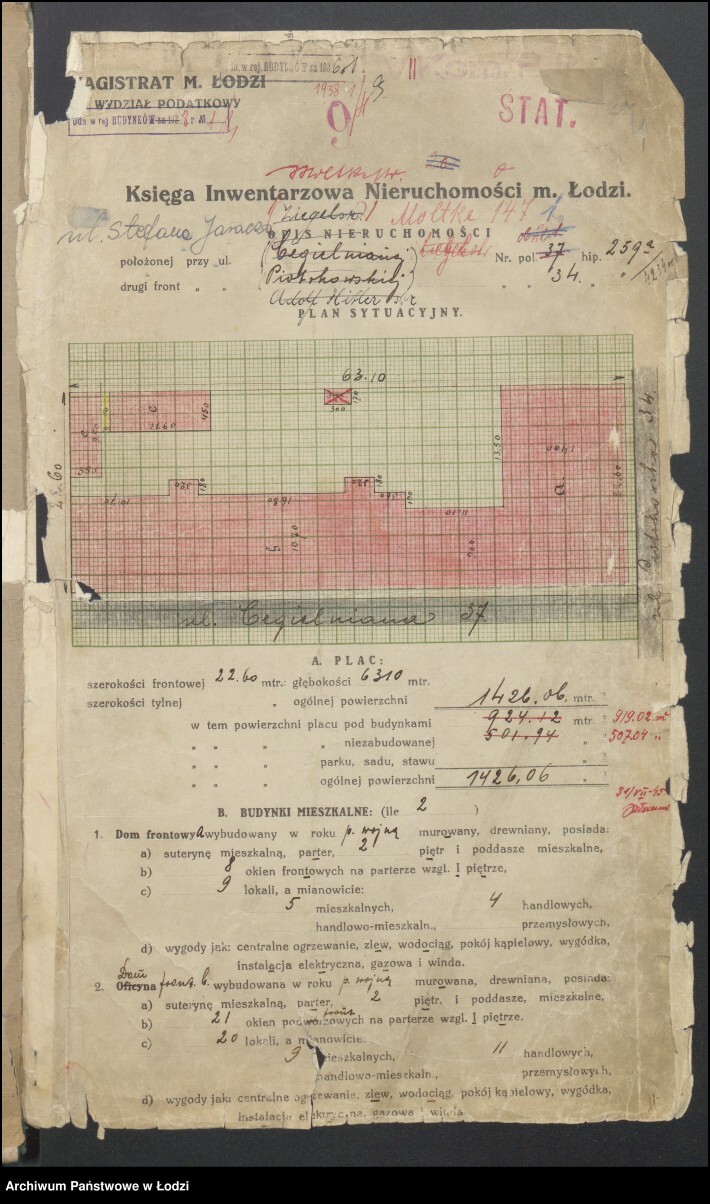 MAGISTRAT M. ŁODZI
WYDZIAŁ PODATKOWY
w rej. BUDYNKÓW na 193
w rej BUDYNKÓW na 193 8 r №
1938
9
STAT.
Księga Inwentarzowa Nieruchomości m. Łodzi.
ul. Stefana Jaracza Ziegelstr. Moltke 147
OPIS NIERUCHOMOŚCI
położonej przy ul. Cegielnianej Nr. pol. 37 hip. 259a
drugi front „ „ Piotrkowskiej „ „ 34. „ „
Adolf Hitler str
PLAN SYTUACYJNY.
63.10
c
450
11.60
300
170
13.50
1400
a.
22.60
320
180
10.70
1680
320
180
360
100
11.10
b
10.70
900
ul. Cegielniana 37.
ul. Piotrkowska 34.
A. PLAC:
szerokości frontowej 22.60 mtr.: głębokości 6310 mtr.
szerokości tylnej „ ogólnej powierzchni 1426.06. mtr. „
w tem powierzchni placu pod budynkami 924.12 mtr „ 919.02 m²
„ „ „ „ niezabudowanej 501.94 „ „ 507.04 „
„ „ „ parku, sadu, stawu „
„ „ „ ogólnej powierzchni 1426,06 „
31/VII-45
B. BUDYNKI MIESZKALNE: (ile 2 )
1. Dom frontowy a wybudowany w roku p. wojną murowany, drewniany, posiada:
a) suterynę mieszkalną, parter, 2 piętr i poddasze mieszkalne,
b) 8 okien frontowych na parterze wzgl. I piętrze,
c) 9 lokali, a mianowicie:
5 mieszkalnych, 4 handlowych,
handlowo-mieszkaln., przemysłowych,
d) wygody jak: centralne ogrzewanie, zlew, wodociąg, pokój kąpielowy, wygódka,
instalacja elektryczna, gazowa i winda.
Dom
2. Oficyna front. b. wybudowana w roku p. wojną murowana, drewniana, posiada:
a) suterynę mieszkalną, parter, 2 piętr. i poddasze, mieszkalne,
b) 21 okien podwórzowych front na parterze wzgl. I piętrze.
c) 20 lokali, a mianowicie:
9 mieszkalnych, 11 handlowych,
handlowo-mieszkaln., przemysłowych,
d) wygody jak: centralne ogrzewanie, zlew, wodociąg, pokój kąpielowy, wygódka,
instalacja elektryczna, gazowa i winda
Archiwum Państwowe w Łodzi